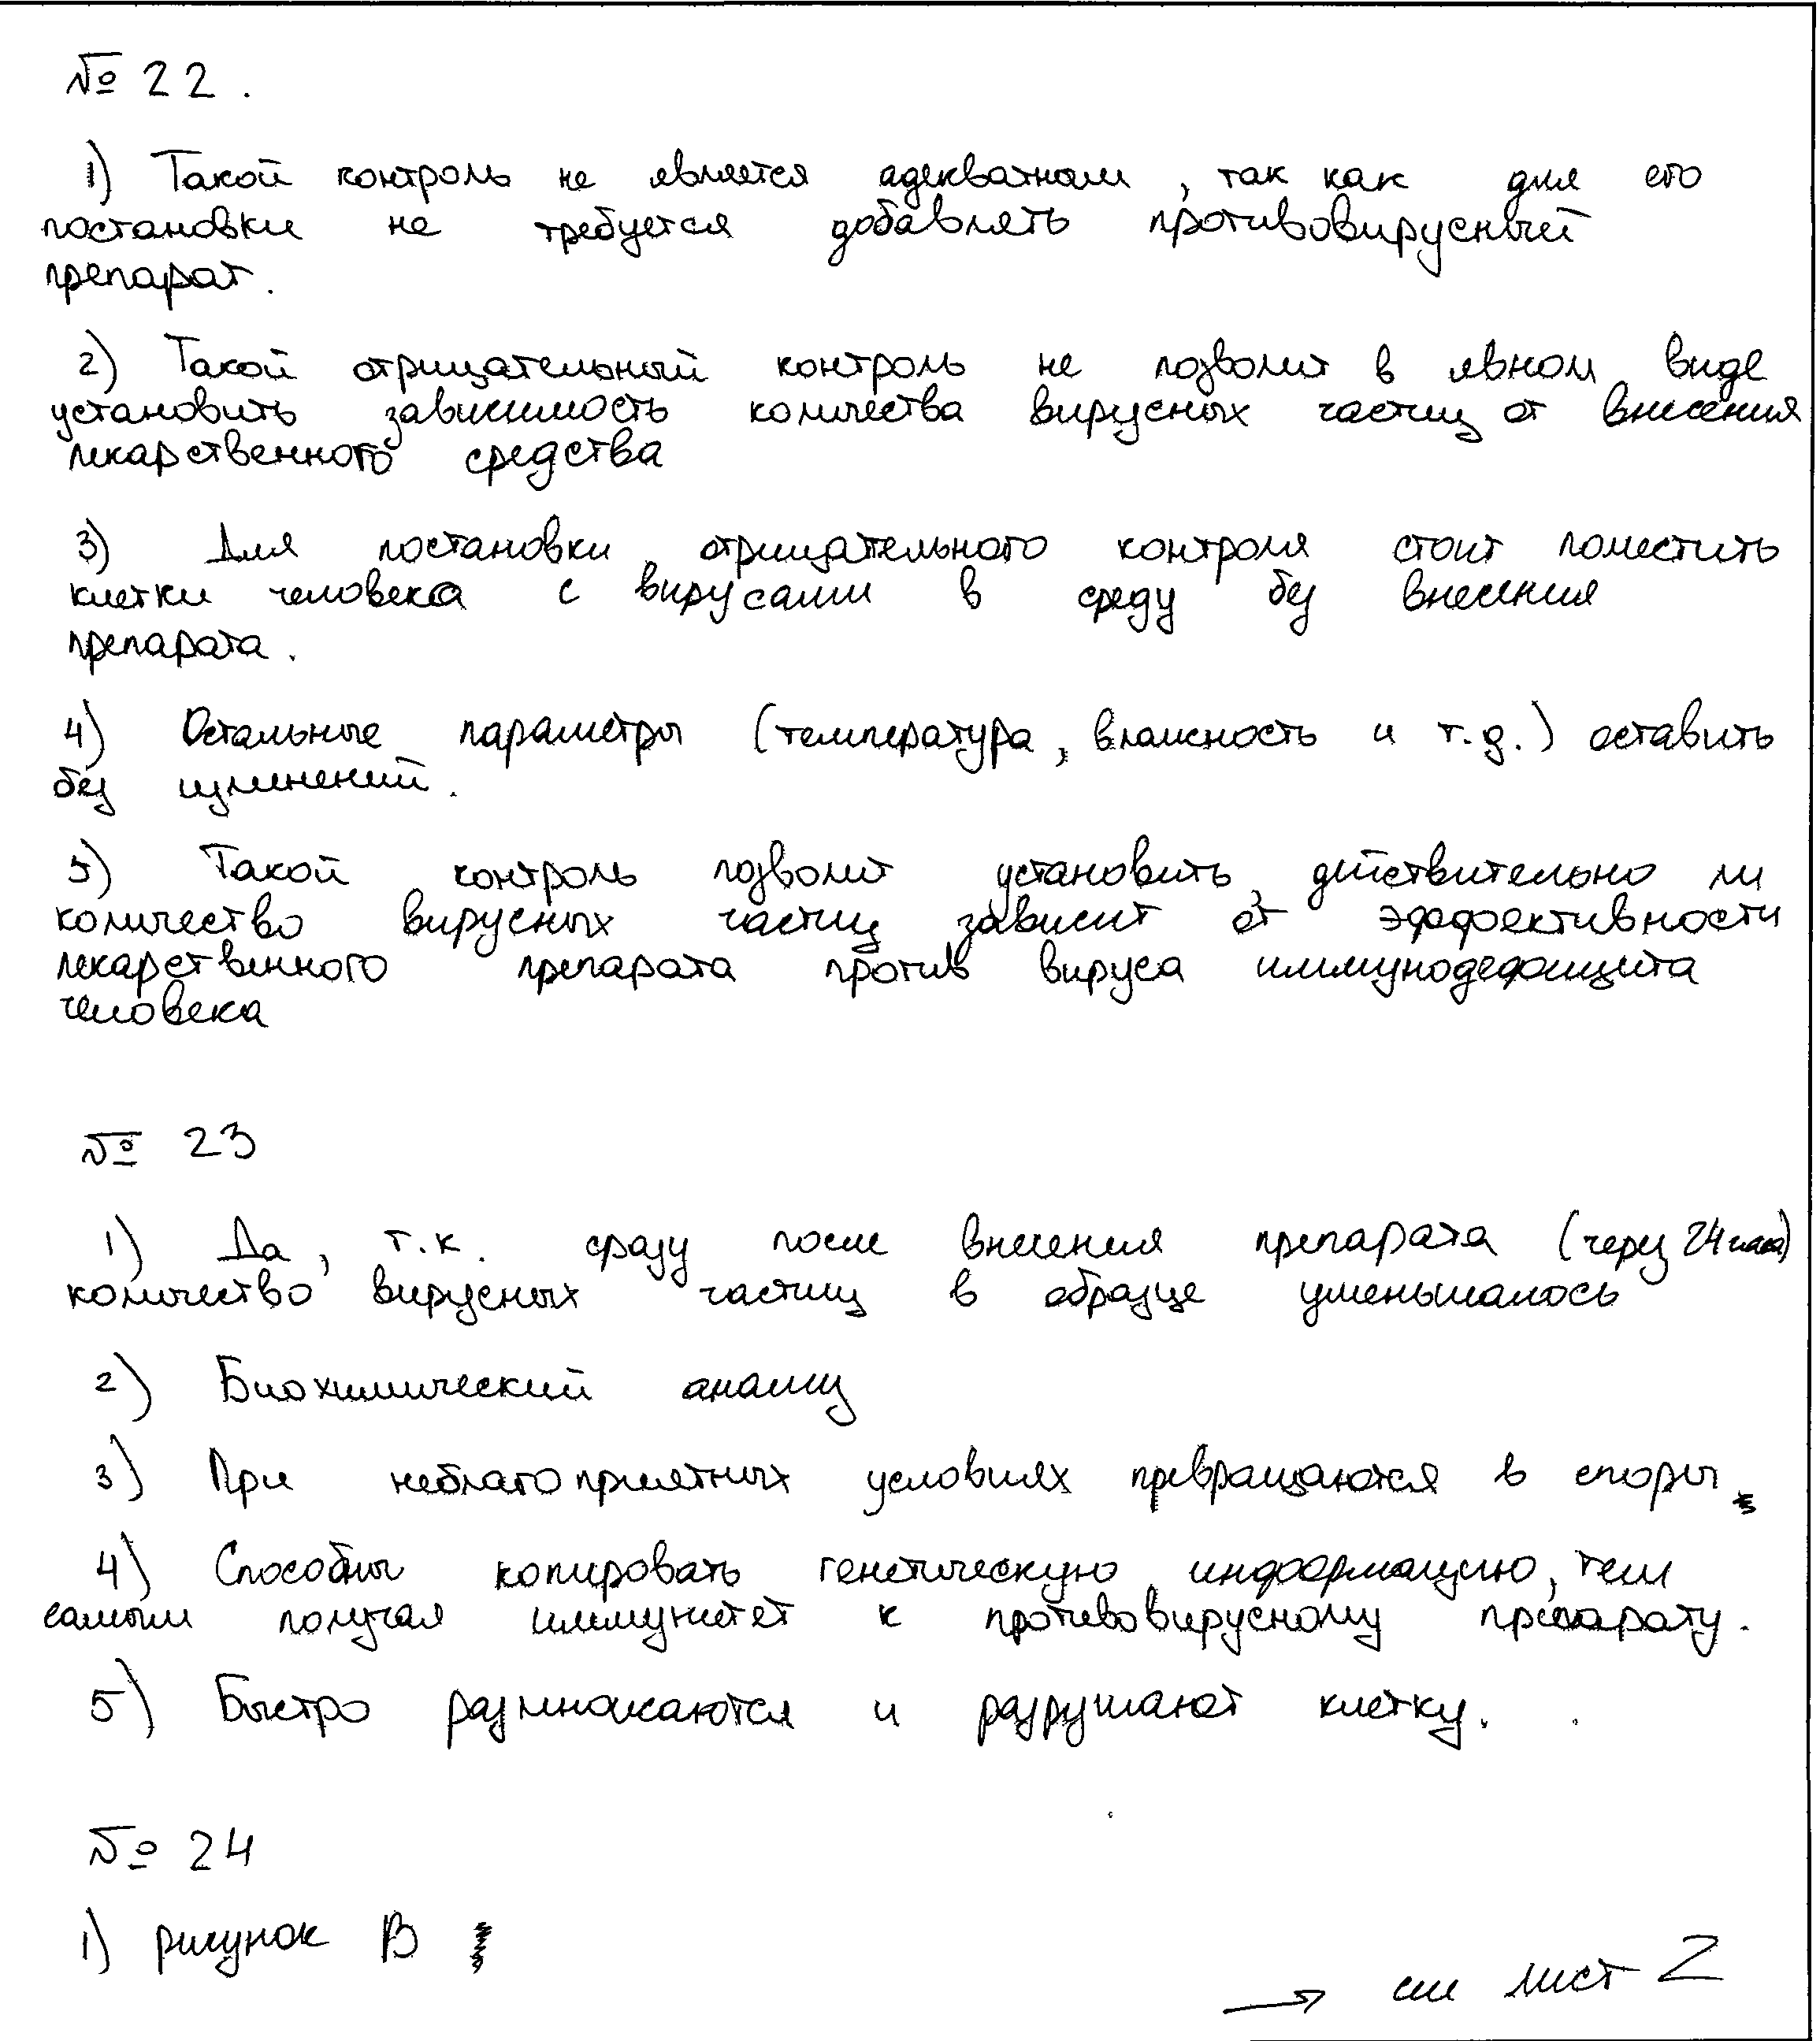 № 22.
1) Такой контроль не является адекватным, так как для его
постановки не требуется добавлять противовирусный
препарат.
2) Такой отрицательный контроль не позволит в явном виде
установить зависимость количества вирусных частиц от внесения
лекарственного средства
3) Для постановки отрицательного контроля стоит поместить
клетки человека с вирусами в среду без внесения
препарата.
4) Остальные параметры (температура, влажность и т.д.) оставить
без изменений.
5) Такой контроль позволит установить, действительно ли
количество вирусных частиц зависит от эффективности
лекарственного препарата против вируса иммунодефицита
человека
№ 23
1) Да, т.к. сразу после внесения препарата (через 24 часа)
количество вирусных частиц в образце уменьшалось
2) Биохимический анализ
3) При неблагоприятных условиях превращаются в споры
4) Способны копировать генетическую информацию, тем
самым получая иммунитет к противовирусному препарату.
5) Быстро размножаются и разрушают клетку.
№ 24
1) рисунок В
→ см лист 2